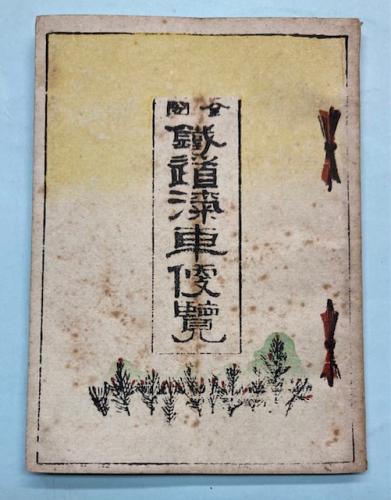 全國
鐵道滊車便覽